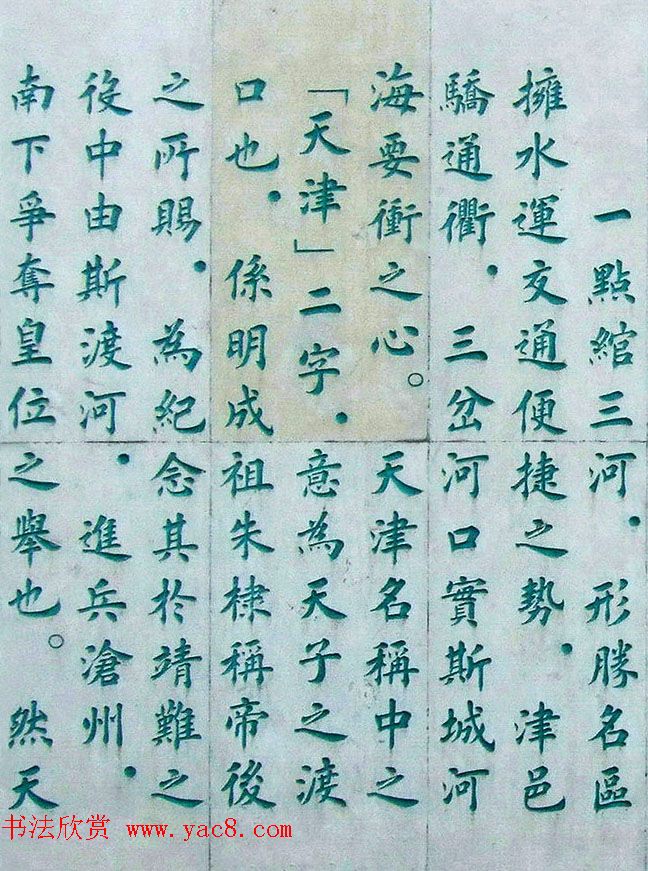 一點綰三河．形勝名區
擁水運交通便捷之勢．津邑
驕通衢．三岔河口實斯城河
海要衝之心。天津名稱中之
「天津」二字．意為天子之渡
口也．係明成祖朱棣稱帝後
之所賜．為紀念其於靖難之
役中由斯渡河．進兵滄州．
南下爭奪皇位之舉也。然天
书法欣赏 www.yac8.com